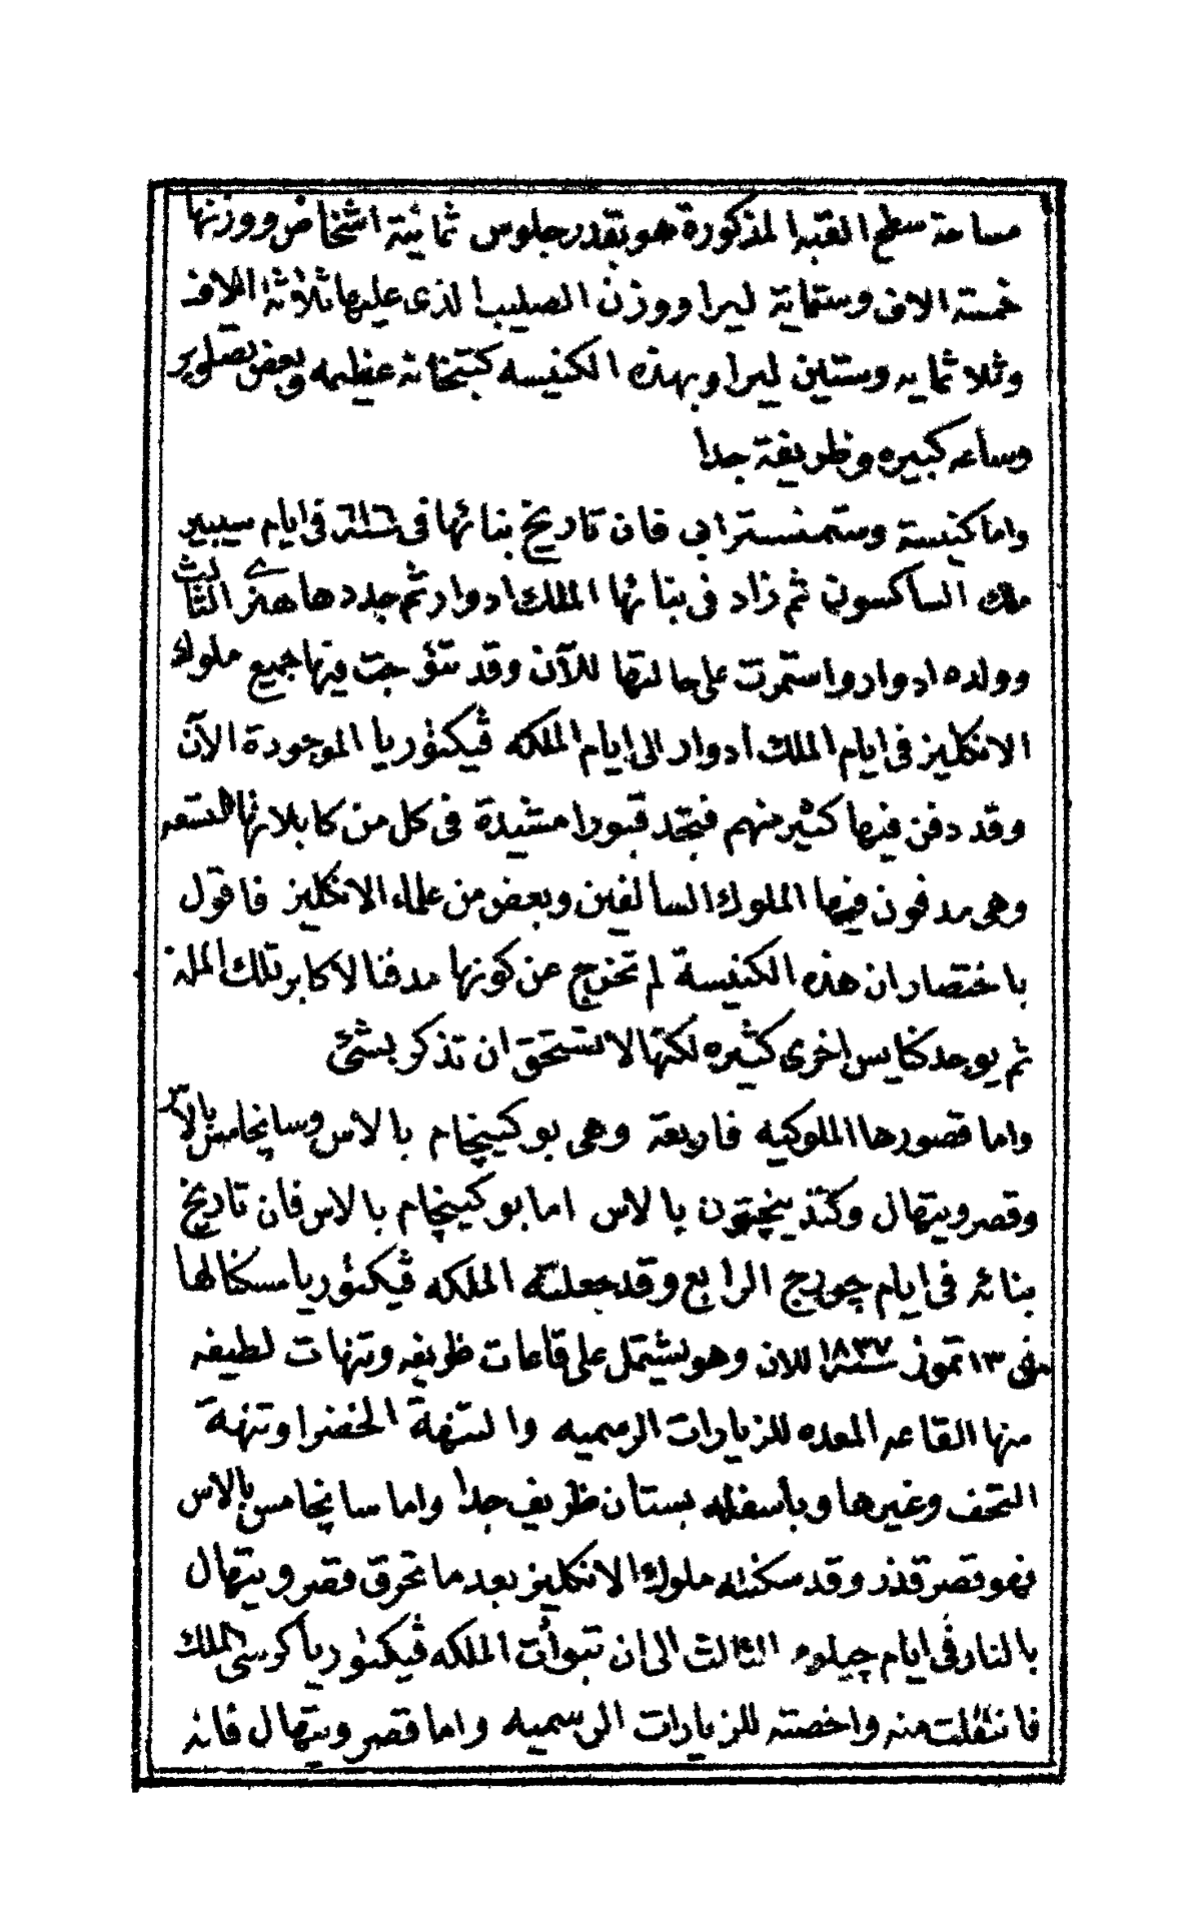 مساحة سطح القبه المذكورة هو بقدر جلوس ثمانية اشخاص ووزنها
خمسة الاف وستماية ليرا ووزن الصليب الذى عليها ثلاثة الاف
وثلاثمايه وستين ليرا وبهذه الكنيسه كتبخانة عظيمه وبعض تصاوير
وساعه كبيره وظريفة جدا
واما كنيسة وستمنستر ابي فان تاريخ بنائها فى سنة ٦١٦ فى ايام سيبير
ملك الساكسون ثم زاد فى بنائها الملك ادوار ثم جددها هنرى الثالث
وولده ادوار واستمرت على حالتها للآن وقد تتوجت فيها جميع ملوك
الانكليز فى ايام الملك ادوار الى ايام الملكه ڤيكتوريا الموجودة الآن
وقد دفن فيها كثير منهم فتجد قبورا مشيدة فى كل من كابلاتها التسعه
وهى مدفون فيها الملوك السالفين وبعض من علماء الانكليز فاقول
باختصار ان هذه الكنيسة لم تخرج عن كونها مدفنا لاكابر تلك المله
ثم يوجد كنايس اخرى كثيره لكنها لا تستحق ان تذكر بشئ
واما قصورها الملوكيه فاربعة وهى بوكينجام بالاس وسانجامس بالاس
وقصر ويتهال وكنذينجتون بالاس اما بوكينجام بالاس فان تاريخ
بنائه فى ايام جورج الرابع وقد جعلته الملكه ڤيكتوريا مسكنا لها
فى ١٣ تموز سنة ١٨٣٧ للان وهو يشتمل على قاعات ظريفه وتنهات لطيفه
منها القاعه المعده للزيارات الرسميه والتنهة الخضرا وتنهة
التحف وغيرها وبأسفله بستان ظريف جدا واما سانجامس بالاس
فهو قصر قذر وقد سكنته ملوك الانكليز بعد ما تحرق قصر ويتهال
بالنار فى ايام الثالث الى ان تبوأت الملكه ڤيكتوريا كرسى الملك
فانتقلت منه واخصته للزيارات الرسميه واما قصر ويتهال فانه